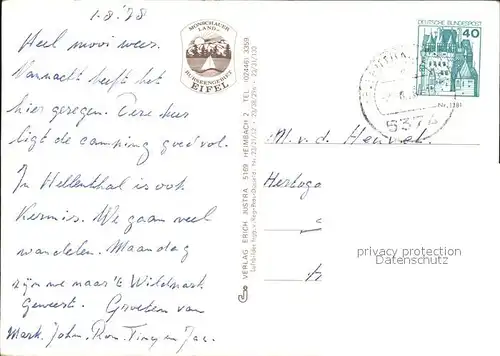 1-8-'78
Heel mooi weer.
Vannacht heeft het
hier geregen. Deze keer
ligt de camping goed vol.
In Hellenthal is ook
Kermis. We gaan veel
wandelen. Maandag
zijn we naar 't Wildpark
geweest. Groeten van
Mark. John. Ron. Tiny en Jac.
MONSCHAUER
LAND
RURSEENGEBIET
EIFEL
VERLAG ERICH JUSTRA 5169 HEIMBACH 2 · TEL. (02446) 3359
DEUTSCHE BUNDESPOST
40
5374
Nr. 1381
M. v. d. Heuvel
Hertog
privacy protection
Datenschutz